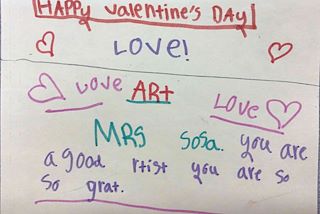 HAPPY Valentine's DAY
LOVE!
LOVE ARt LOVE
MRS Sosa. you are
a good rtist you are so
so grat.